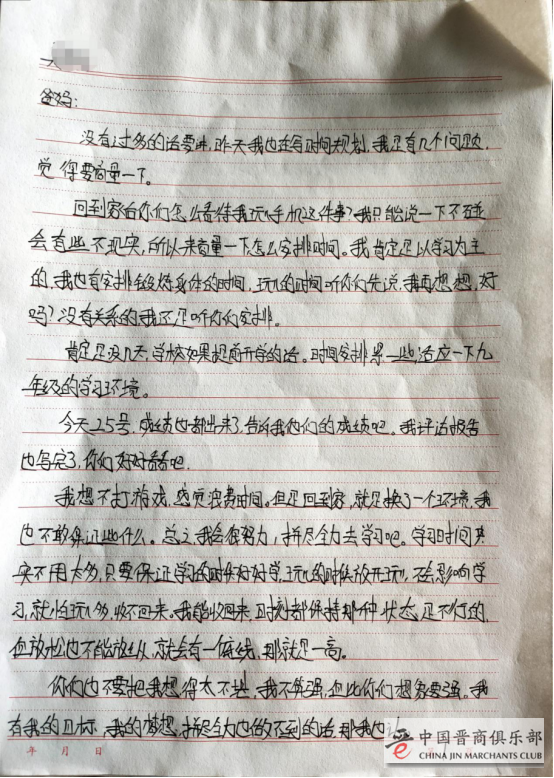 爸妈:
没有过多的话要讲,昨天我也在写时间规划,我还有几个问题,
觉得要商量一下。
回到家后你们怎么看待我玩手机这件事?我只能说一下不碰
会有些不现实,所以来商量一下怎么安排时间。我肯定是以学习为主
的,我也有安排锻炼身体的时间,玩的时间听你们先说,我再想想,好
吗?没有关系的我还是听你们安排。
肯定是没几天,学校如果提前开学的话。时间安排紧一些适应一下九
年级的学习环境。
今天25号,成绩也都出来了,告诉我他们的成绩吧。我评估报告
也写完了,你们好好看看吧.
我想不打游戏,感觉浪费时间。但是回到家,就是换了一个环境,我
也不敢保证些什么。总之我会很努力,拼尽全力去学习吧。学习时间其
实不用太多,只要保证学习的时候好好学,玩的时候放开玩,不会影响学
习,就怕玩多,收不回来。我能收回来,时刻都保持那种状态是不行的,
但放松也不能放纵,就会有一个底线,那就是一高。
你们也不要把我想得太不堪,我不算强,但比你们想象要强。我
有我的目标,我的梦想,拼尽全力也做不到的话,那我也认
年 月 日
晋 中国晋商俱乐部
CHINA JIN MARCHANTS CLUB